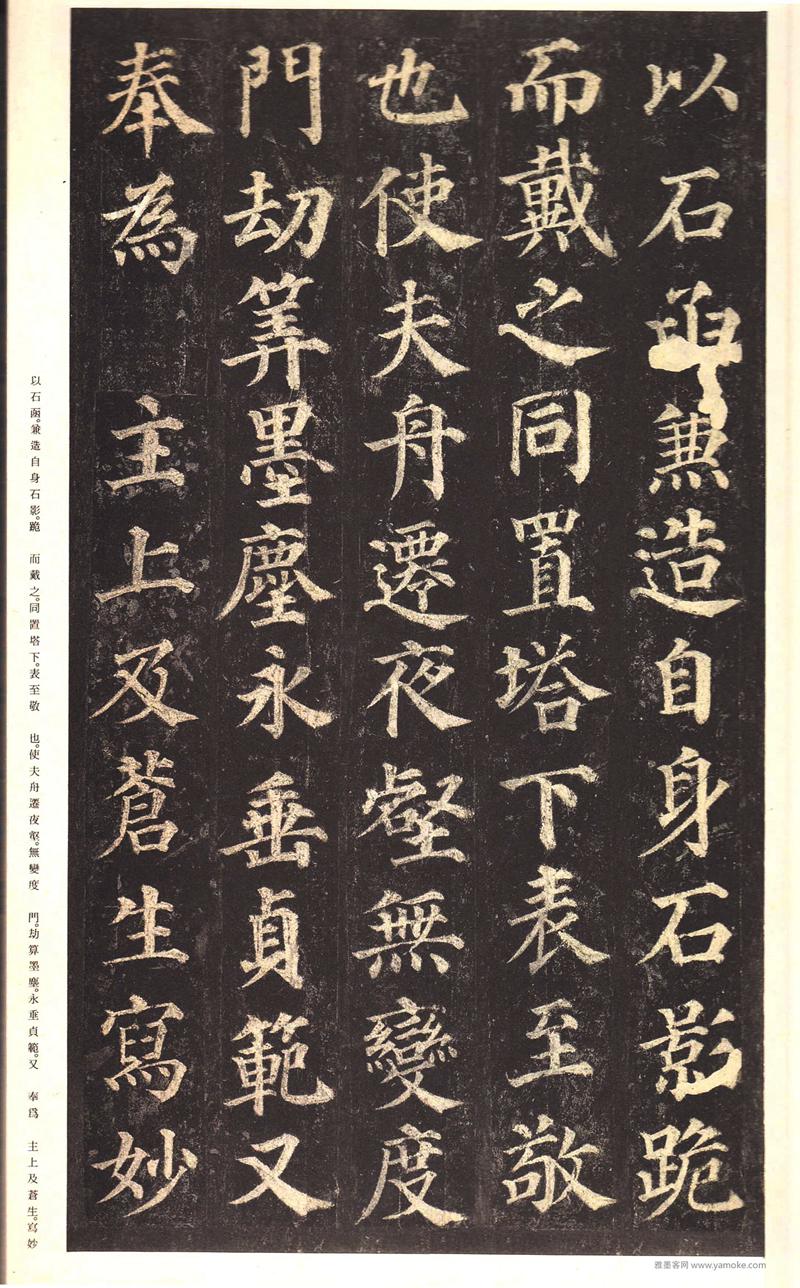 以石函兼造自身石影跪
而戴之同置塔下表至敬
也使夫舟遷夜壑無變度
門劫筭墨塵永垂貞範又
奉為 主上及蒼生寫妙
以石函。兼造自身石影。跪 而戴之。同置塔下。表至敬 也。使夫舟遷夜壑。無變度 門。劫算墨塵。永垂貞範。又 奉爲 主上及蒼生。寫妙
雅墨客网 www.yamoke.com